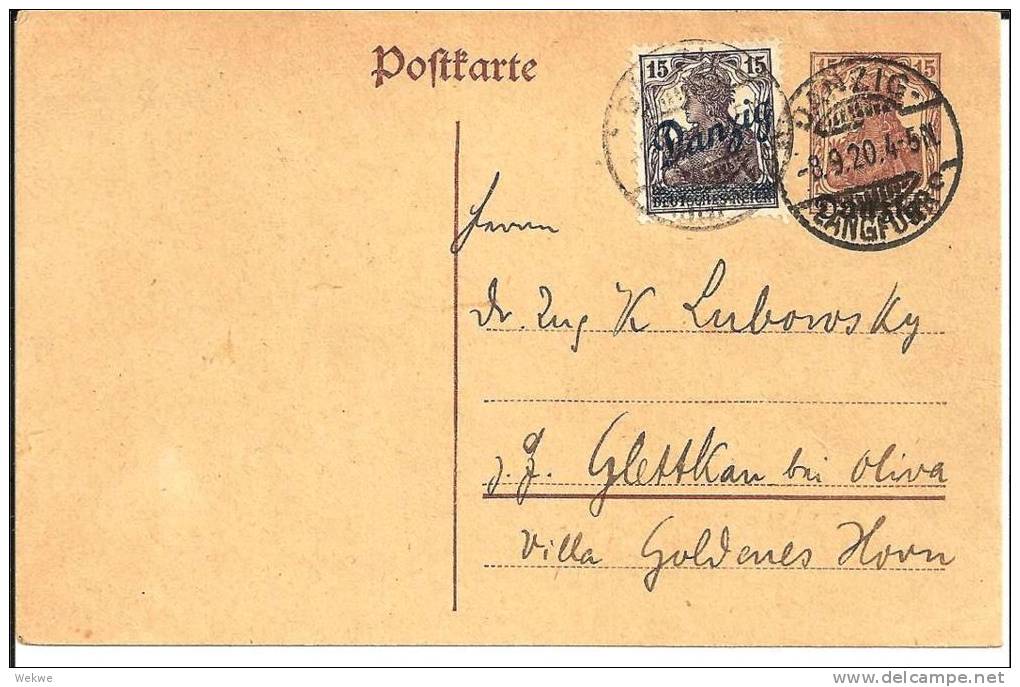 Postkarte
15 15
Danzig
DEUTSCHES REICH
15 15
Danzig
DANZIG-
-8.9.20.4-5N
LANGFUHR
Herrn
Dr. Ing K Lubowsky
z. Z. Glettkau bei Oliva
Villa Goldenes Horn
Wekwe
www.delcampe.net